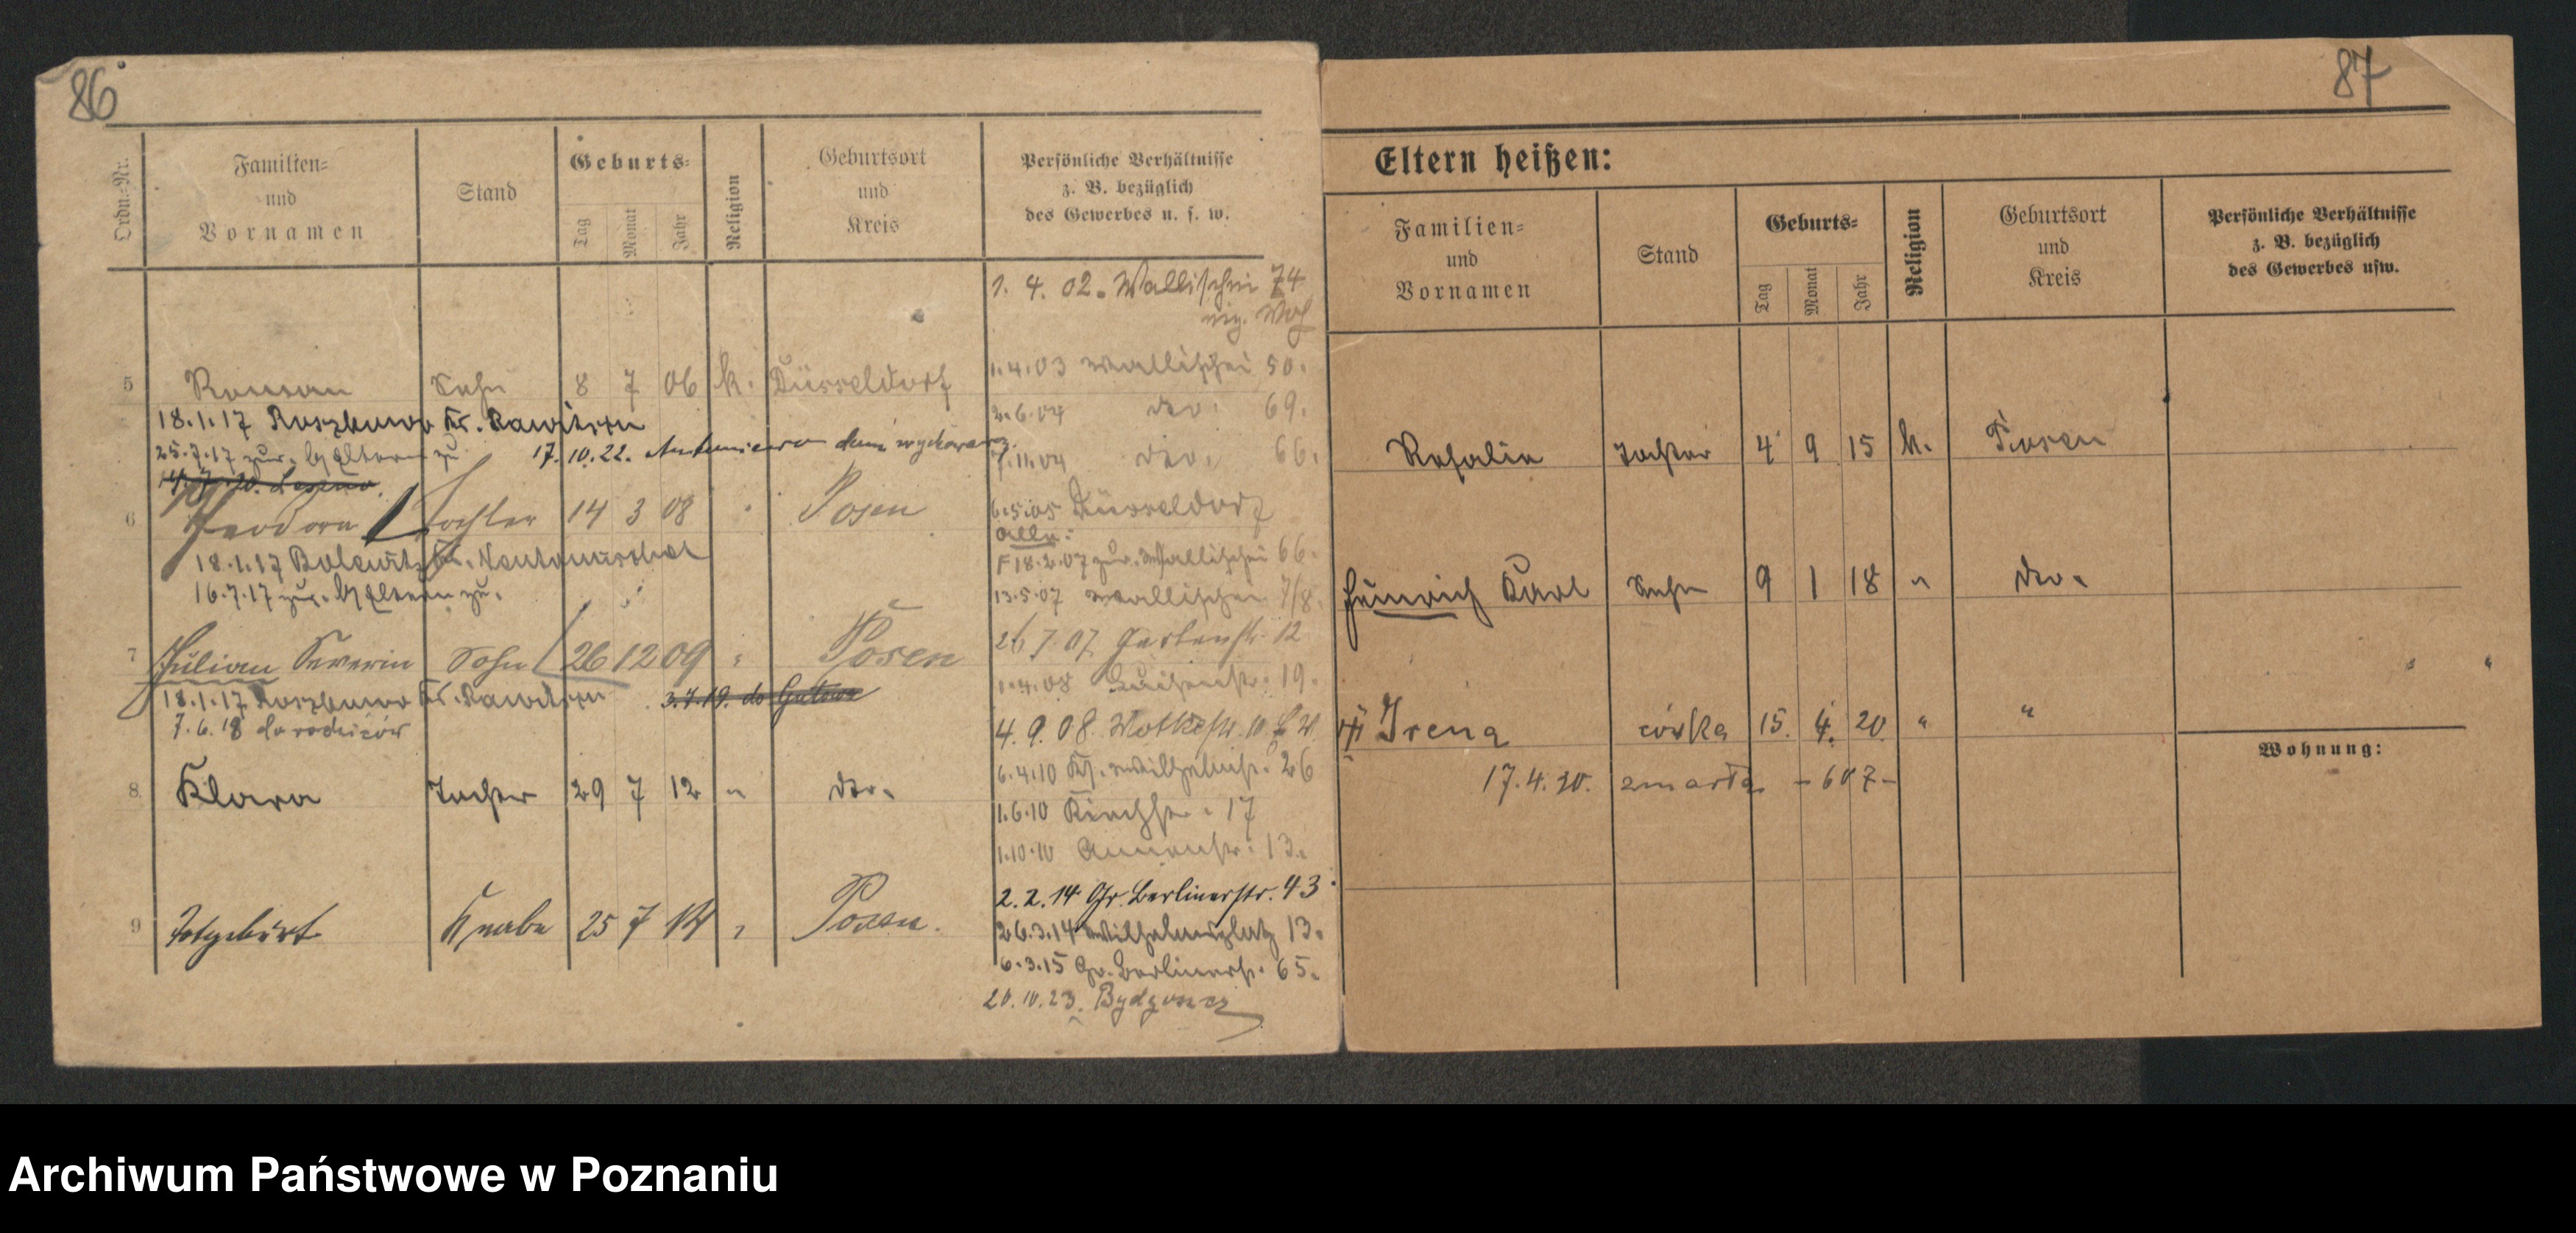 86
Ordn.-Nr.
Familien-
und
Vornamen
Stand
Geburts-
Tag
Monat
Jahr
Religion
Geburtsort
und
Kreis
Persönliche Verhältnisse
z. B. bezüglich
des Gewerbes u. s. w.
5 Roman Sohn 8 7 06 k. Düsseldorf
18.1.17 Roszkowo Kr. Rawitsch
25.7.17 zur. b/Eltern zu
17.10.22. Antoniewo dom wychowaw.
14.7.20.
6 Theodora Tochter 14 3 08 Posen
18.1.17 Bolewitz Kr. Neutomischel
16.7.17 zur. b/Eltern zu.
7 Julian Severin Sohn 26 12 09 " Posen
18.1.17 Roszkowo Kr. Rawitsch
3.7.19. do Gutowa
7.6.18 do rodziców
8 Klara Tochter 29 7 12 " dto.
9 Totgeburt Knabe 25 7 14 " Posen.
1. 4. 02. Wallischei 74
1.4.03 Wallischei 50.
2.6.04 dto. 69.
7.11.04 dto. 66.
6.5.05 Düsseldorf
alle:
F 18.2.07 zur. Wallischei 66.
13.5.07 Wallischei 7/8.
26.7.07 Gartenstr. 12
1.4.08 Luisenstr. 19.
4.9.08. Moltkestr. 10
6.4.10 Kg. Wilhelmstr. 26
1.6.10 Kirchstr. 17
1.10.10 Annenstr. 13.
2.2.14 Gr. Berlinerstr. 43
26.3.14 Wilhelmsplatz 13.
6.3.15 Gr. Berlinerstr. 65.
20.10.23. Bydgoszcz
87
Eltern heißen:
Familien-
und
Vornamen
Stand
Geburts-
Tag
Monat
Jahr
Religion
Geburtsort
und
Kreis
Persönliche Verhältnisse
z. B. bezüglich
des Gewerbes usw.
Rosalia Tochter 4 9 15 k. Posen
Heinrich Karl Sohn 9 1 18 " dto.
Irena córka 15. 4. 20. " "
17.4.20. zmarła - 607 -
Wohnung:
Archiwum Państwowe w Poznaniu